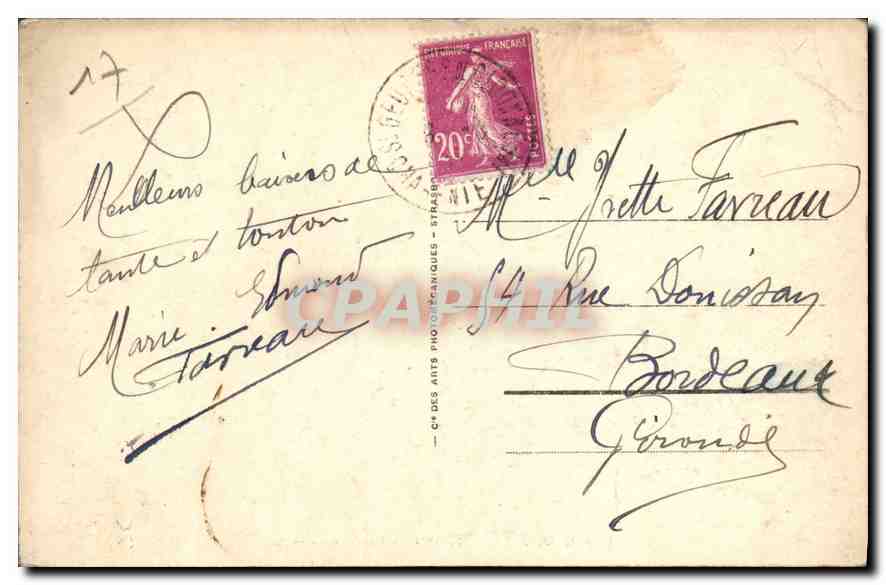 17
Meilleurs baisers de
tante et tonton
Marie. Edmond
Favreau
REPUBLIQUE FRANÇAISE
20c
POSTES
Cie DES ARTS PHOTOMÉCANIQUES - STRASB
Melle Yvette Favreau
54 Rue Donissan
Bordeaux
Gironde
CPAPHIL